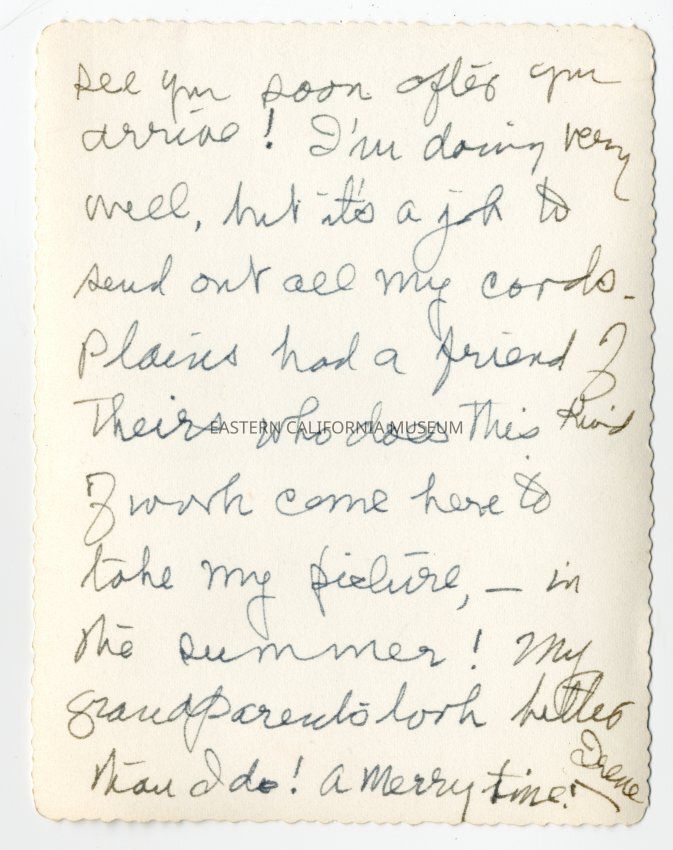 see you soon after you
arrive! I'm doing very
well, but it's a job to
send out all my cards.
Plains had a friend of
Theirs who does this kind
EASTERN CALIFORNIA MUSEUM
of work come here to
take my picture, — in
the summer! My
grandparents look better
than I do! A Merry time!
Irene